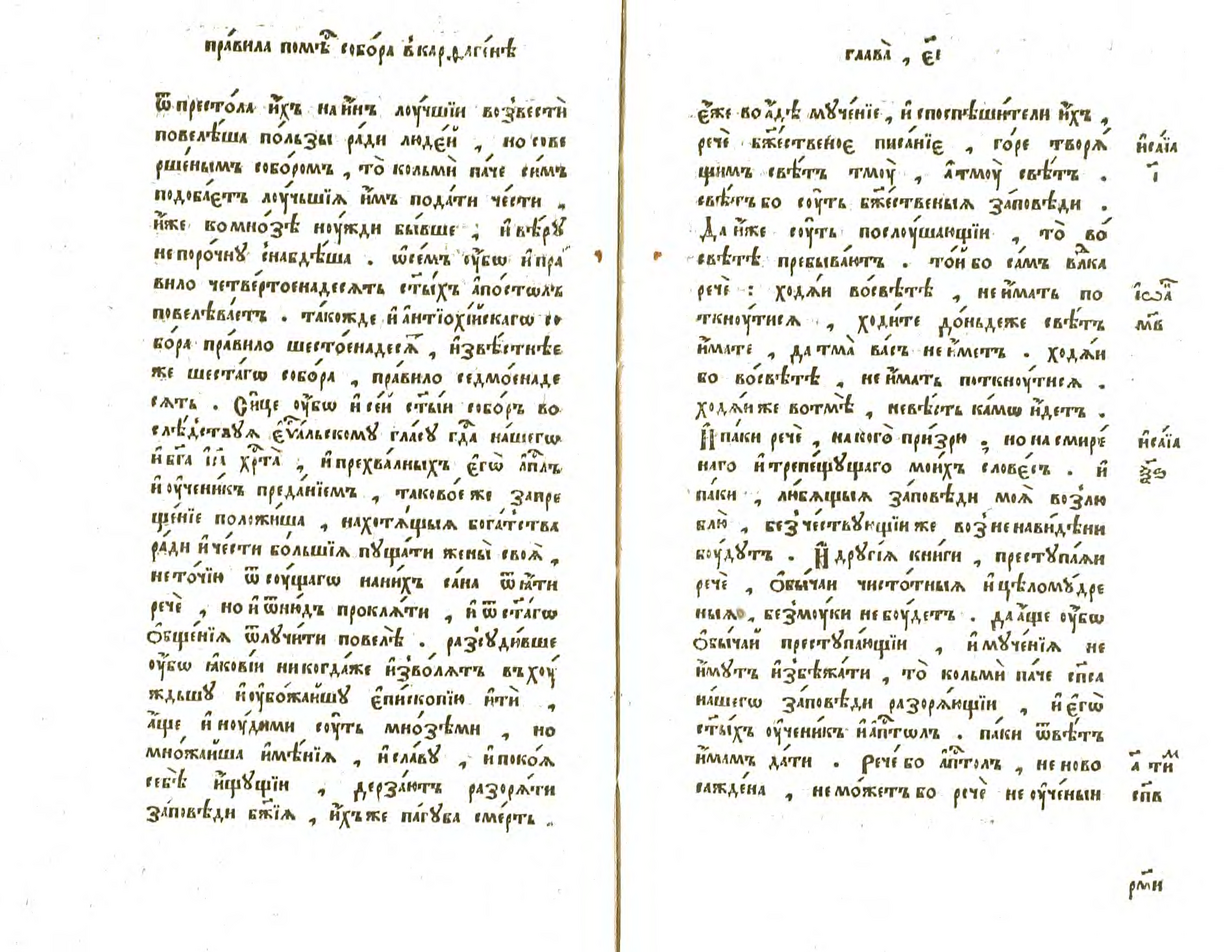 пра́вила помѣ́ⷭ собо́ра в҆кардаге́нѣ
ѿпресто́ла и҆́хъ наи҆́нъ лоу́чшїи возвестѝ
повелѣ́ша по́льзы ра́ди люде́й , носове
рше́нымъ собо́ромъ , то̀ кольмѝ па́че си́мъ
подоба́єтъ лоу́чьшїѧ и҆́мъ пода́ти че́сти ,
и҆́же вомно́зѣ ноу́жди бы́вше , и҆вѣ́рꙋ
непоро́чнꙋ снабдѣ́ша . ѡ҆се́мъ ᲂу҆́бѡ и҆пра́
вило четве́ртоенадесѧть ст҃ы́хъ а҆по́столъ
повелѣва́етъ . та́кожде и҆а҆нтїохі́йскагѡ со
бо́ра пра́вило шесто́енадесѧ́ⷮ , и҆звѣ́стнѣе
же шеста́гѡ собо́ра , пра́вило седмо́енаде
сѧть . Си́це ᲂу҆́бѡ и҆се́й ст҃ы́и собо́ръ во
слѣ́дствꙋѧ є҆ѵⷢ҇альскомꙋ гла́сꙋ гдⷭ҇а на́шегѡ
и҆бг҃а і҆с҃а хрⷭ҇та̀ , и҆прехва́лныхъ є҆гѡ̀ а҆пⷭ҇лъ
и҆ᲂу҆чени́къ преда́нїемъ , таково́еже запре
ще́нїе положи́ша , нахотѧ́щыѧ бога́тства
ра́ди и҆че́сти бо́льшїѧ пꙋща́ти жены̀ своѧ̀ ,
нето́чїю ѿсоу́щагѡ нани́хъ са́на ѿѧ҆́ти
речѐ , нои҆ѿню́дъ проклѧ́ти , и҆ѿст҃а́гѡ
ѻ҆бще́нїѧ ѿлꙋчи́ти повелѣ̀ . разсꙋди́вше
ᲂу҆́бѡ ꙗ҆ковíи никогда́же и҆зво́лѧтъ въхоу́
ждьшꙋ и҆ᲂу҆бо́жайшꙋ є҆пи́скопїю и҆тѝ ,
а҆́ще и҆ноу́дими соу́ть мно́зѣми , но
мно́жайша и҆мѣ́нїѧ , и҆сла́вꙋ , и҆поко́ѧ
себѣ̀ и҆́щꙋщїи , дерза́ютъ разорѧ́ти
за́повѣди бж҃їѧ , и҆́хъже па́гꙋба сме́рть .
глава̀ , є҃і
є҆́же воа҆́дѣ мꙋче́нїе , и҆споспѣ́шители и҆́хъ ,
речѐ бж҃е́ственоє писа́нїє , го́ре творѧ́
щимъ свѣ́тъ тмоу̀ , а҆тмоу̀ свѣ́тъ .
свѣ́тъбо соу́ть бж҃е́ственыѧ за́повѣди .
Даи҆́же соу́ть послоу́шающїи , то̀ во́
свѣтѣ пребыва́ютъ . то́йбо са́мъ влⷣка
речѐ : ходѧ́и во́свѣтѣ , неи҆́мать по
ткноу́тисѧ , ходи́те до́ньдеже свѣ́тъ
и҆́мате , датма̀ ва́съ неи҆́метъ . ходѧ́и
бо во́свѣтѣ , неи҆́мать поткноу́тисѧ .
ходѧ́иже вотмѣ̀ , невѣ́сть ка́мѡ и҆́детъ .
И҆па́ки речѐ , накого̀ при́зрю , нонасмире́
наго и҆трепе́щꙋщаго мои́хъ слове́съ . и҆
па́ки , лю́бѧщыѧ за́повѣди моѧ̀ возлю
блю̀ , безче́ствꙋющїиже возненави́дѣни
боу́дꙋтъ . И҆ дрꙋгі́ѧ кни́ги , престꙋпа́ѧи
речѐ , ѻ҆бы́чаи чисто́тныѧ и҆цѣломꙋ́дре
ныѧ , безмоу́ки небоу́детъ . даа҆́ще ᲂу҆́бѡ
ѻ҆бы́чай престꙋпа́ющїи , и҆мꙋче́нїѧ не
и҆́мꙋтъ и҆збѣжа́ти , то̀ кольмѝ па́че сп҃са
на́шегѡ за́повѣди разорѧ́ющїи , и҆є҆гѡ̀
ст҃ы́хъ ᲂу҆чени́къ и҆а҆пⷭ҇толъ . па́ки ѿвѣ́тъ
и҆́мамъ да́ти . Рече́бо а҆пⷭ҇толъ , неново
сажде́на , немо́жетъбо речѐ неᲂу҆че́ныи
и҆са́їа
і҃
і҆ѡа҃
м҃в
и҆са́їа
ѯ҃ѕ
а҃ тиⷨ
сп҃в
рм҃и